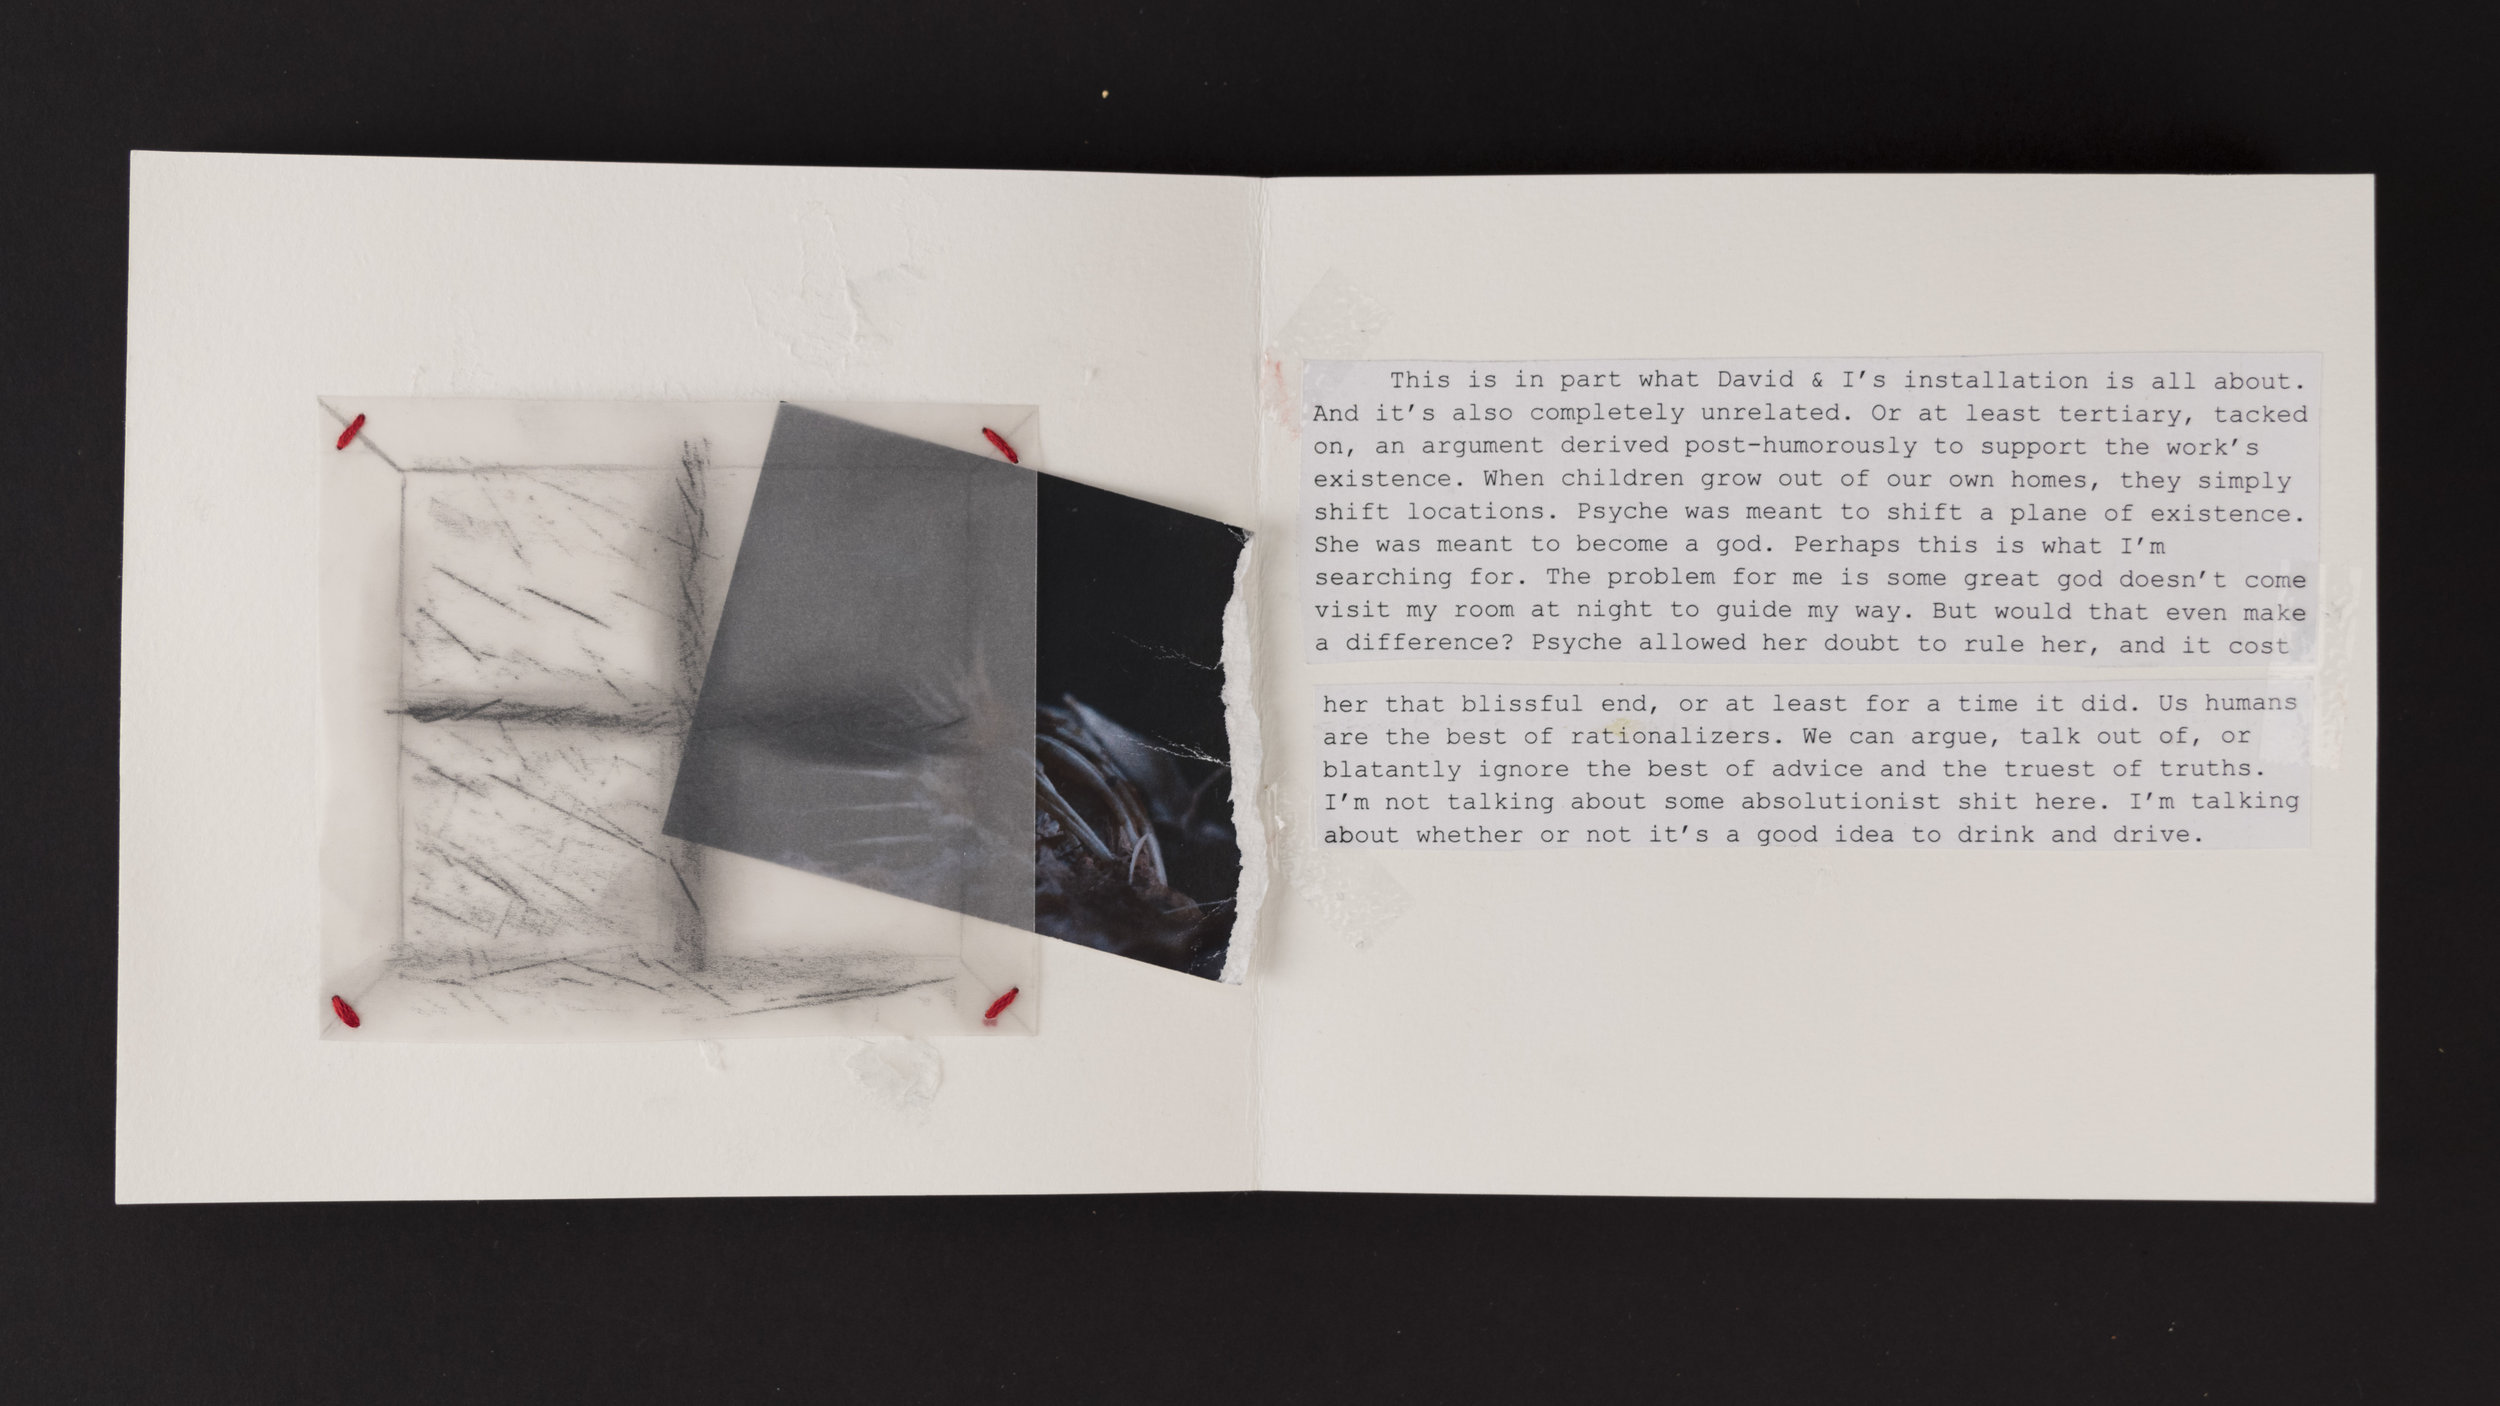 This is in part what David & I's installation is all about.
And it's also completely unrelated. Or at least tertiary, tacked
on, an argument derived post-humorously to support the work's
existence. When children grow out of our own homes, they simply
shift locations. Psyche was meant to shift a plane of existence.
She was meant to become a god. Perhaps this is what I'm
searching for. The problem for me is some great god doesn't come
visit my room at night to guide my way. But would that even make
a difference? Psyche allowed her doubt to rule her, and it cost
her that blissful end, or at least for a time it did. Us humans
are the best of rationalizers. We can argue, talk out of, or
blatantly ignore the best of advice and the truest of truths.
I'm not talking about some absolutionist shit here. I'm talking
about whether or not it's a good idea to drink and drive.